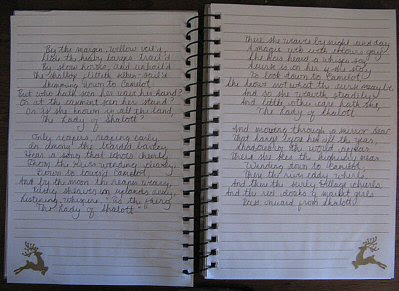 By the margin, willow veil'd,
Slide the heavy barges trail'd
By slow horses; and unhail'd
The shallop flitteth silken-sail'd
Skimming down to Camelot:
But who hath seen her wave her hand?
Or at the casement seen her stand?
Or is she known in all the land,
The Lady of Shalott?
Only reapers, reaping early
In among the bearded barley,
Hear a song that echoes cheerly
From the river winding clearly,
Down to tower'd Camelot:
And by the moon the reaper weary,
Piling sheaves in uplands airy,
Listening, whispers "'Tis the fairy
The Lady of Shalott"
There she weaves by night and day
A magic web with colours gay.
She has heard a whisper say,
A curse is on her if she stay
To look down to Camelot.
She knows not what the curse may be,
And so she weaveth steadily,
And little other care hath she,
The Lady of Shalott
And moving through a mirror clear
That hangs before her all the year,
Shadows of the world appear.
There she sees the highway near
Winding down to Camelot:
There the river eddy whirls,
And there the surly village churls,
And the red cloaks of market girls
Pass onward from Shalott.